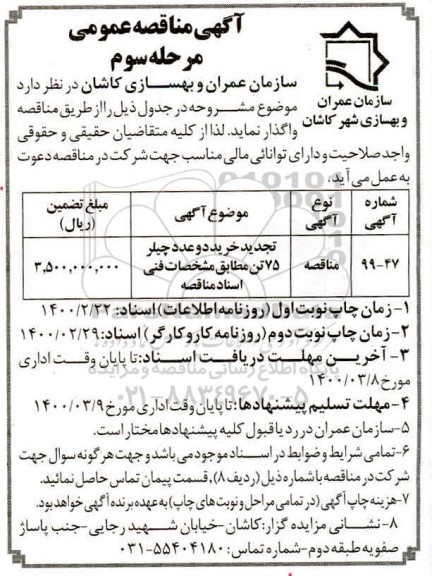 آگهی مناقصه عمومی
مرحله سوم
سازمان عمران
و بهسازی شهر کاشان
سازمان عمران و بهسازی کاشان در نظر دارد
موضوع مشروحه در جدول ذیل را از طریق مناقصه
واگذار نماید. لذا از کلیه متقاضیان حقیقی و حقوقی
واجد صلاحیت و دارای توانائی مالی مناسب جهت شرکت در مناقصه دعوت
به عمل می آید.
شماره آگهی
نوع آگهی
موضوع آگهی
مبلغ تضمین (ریال)
۹۹-۴۷
مناقصه
تجدید خرید دو عدد چیلر
۷۵ تن مطابق مشخصات فنی
اسناد مناقصه
۳,۵۰۰,۰۰۰,۰۰۰
۱-زمان چاپ نوبت اول (روزنامه اطلاعات) اسناد: ۱۴۰۰/۲/۲۲
۲-زمان چاپ نوبت دوم (روزنامه کار و کارگر) اسناد: ۱۴۰۰/۰۲/۲۹
۳- آخرین مهلت دریافت اسناد: تا پایان وقت اداری
مورخ ۱۴۰۰/۰۳/۸
۴-مهلت تسلیم پیشنهادها: تا پایان وقت اداری مورخ ۱۴۰۰/۰۳/۹
۵-سازمان عمران در رد یا قبول کلیه پیشنهادها مختار است.
۶-تمامی شرایط و ضوابط در اسناد موجود می باشد و جهت هر گونه سوال جهت
شرکت در مناقصه با شماره ذیل (ردیف ۸)، قسمت پیمان تماس حاصل نمائید.
۷-هزینه چاپ آگهی (در تمامی مراحل و نوبت های چاپ) به عهده برنده آگهی خواهد بود.
۸-نشانی مزایده گزار: کاشان-خیابان شهید رجایی-جنب پاساژ
صفویه طبقه دوم-شماره تماس: ۵۵۴۰۴۱۸۰-۰۳۱
پایگاه اطلاع رسانی مناقصه و مزایده
۰۲۱-۸۸۳۴۹۶۷۰-۵